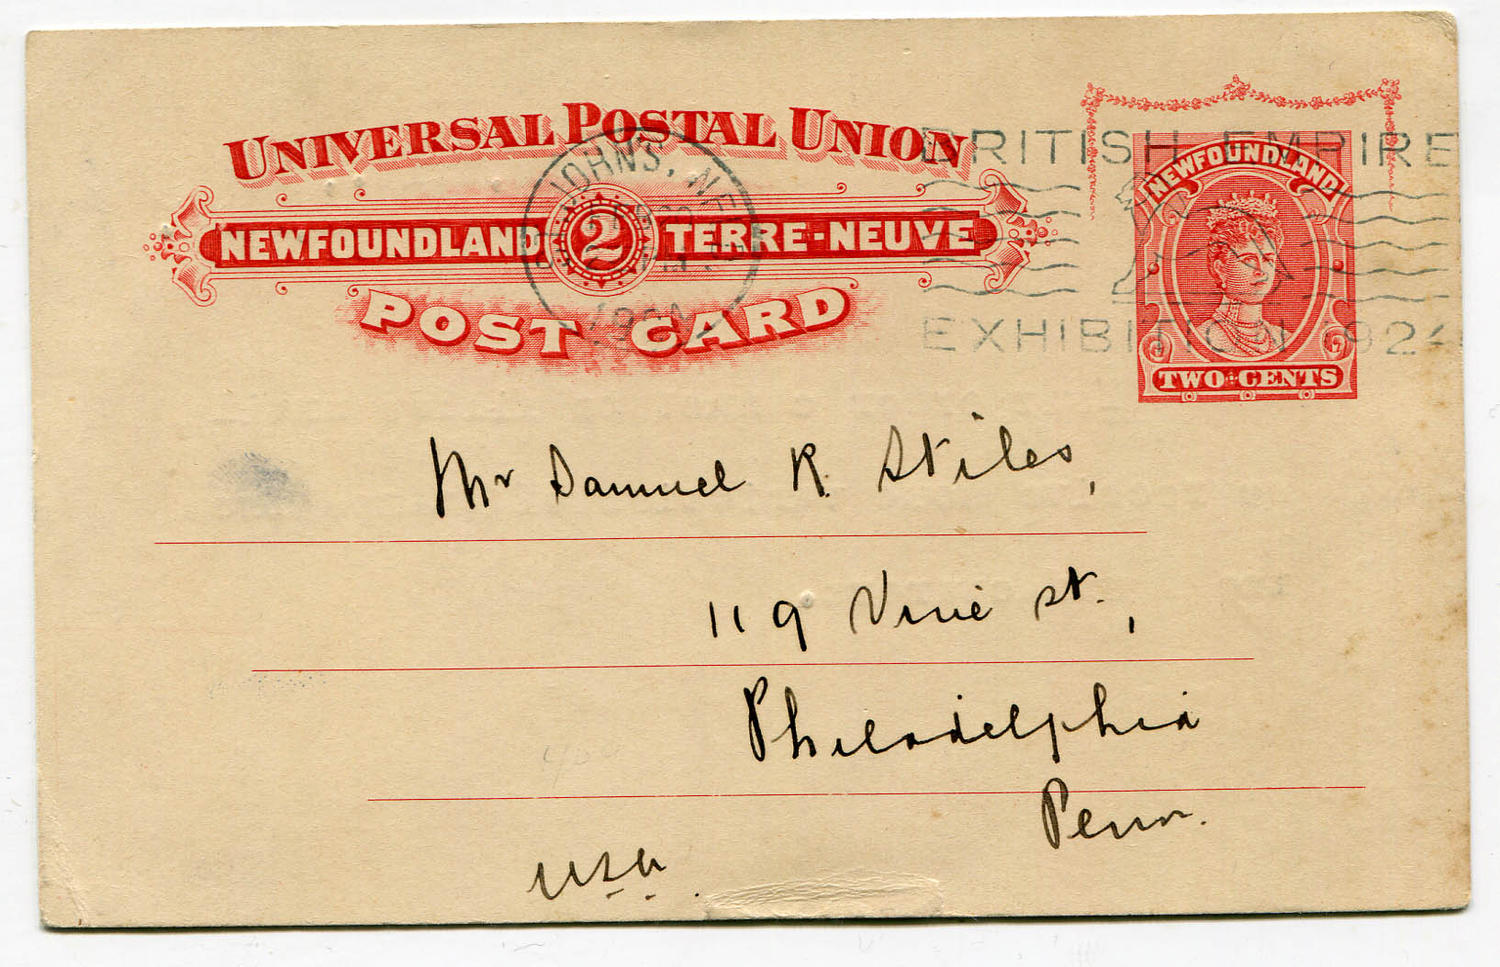 UNIVERSAL POSTAL UNION
NEWFOUNDLAND 2 TERRE-NEUVE
POST CARD
ST. JOHN'S, NEF
1924
BRITISH EMPIRE
EXHIBITION 1924
NEWFOUNDLAND
TWO CENTS
Mr Samuel R. Stiles,
119 Vine St.,
Philadelphia
Penn.
USA.